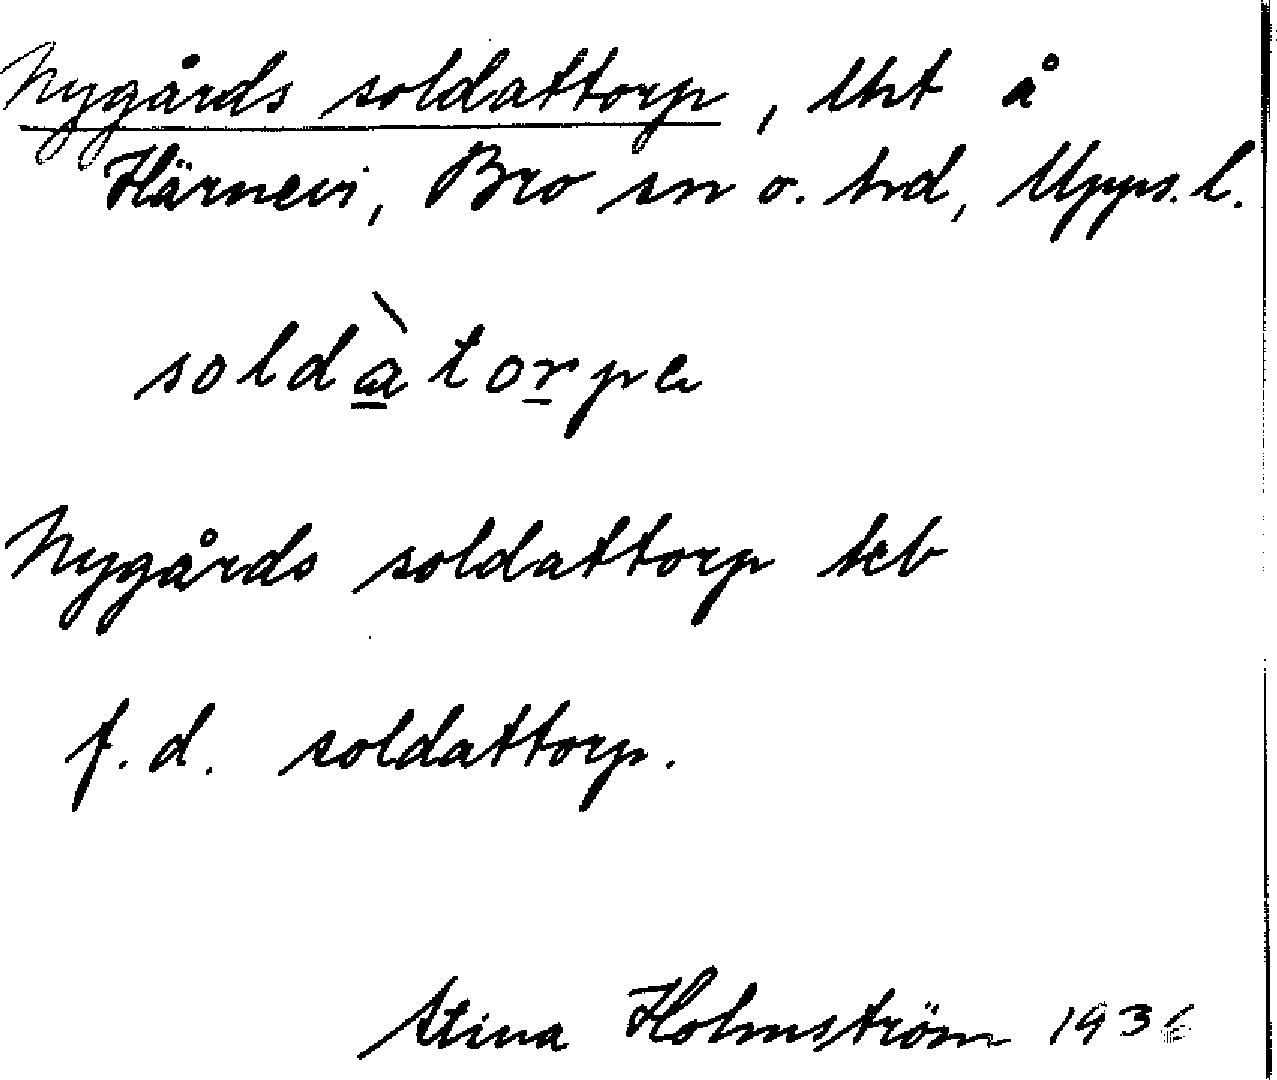 Nygårds soldattorp, lht å
Härnevi, Bro sn o. hd, Upps. l.
soldàtorpa
Nygårds soldattorp keb
f.d. soldattorp.
Stina Holmström 1936